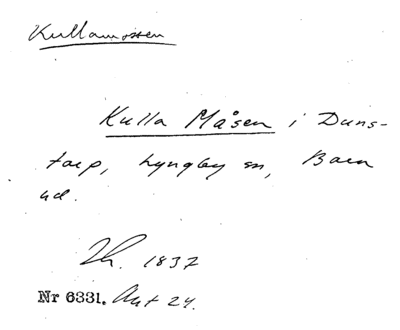 Kullamossen
Kulla Måsen i Duns-
torp, Lyngby sn, Bara
hd.
Th. 1837
Nr 6331. Ant 24.